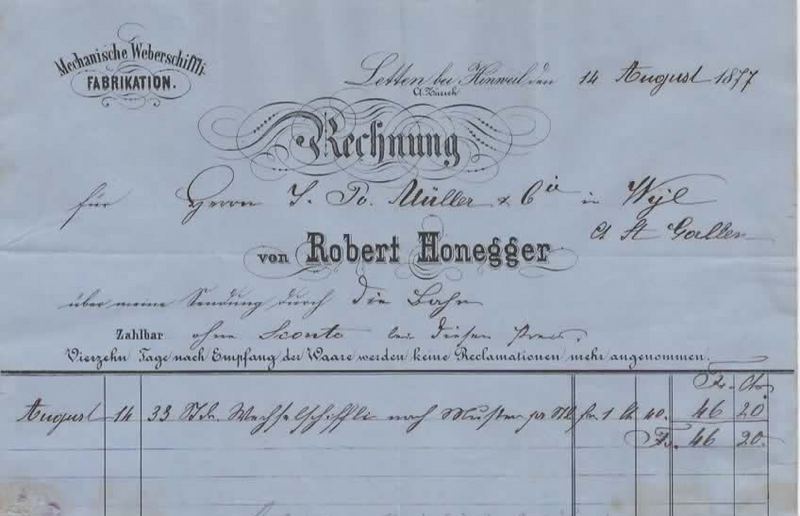 Mechanische Weberschiffli-
FABRIKATION.
Letten bei Hinweil, den 14 August 1877
Ct. Zürich
Rechnung
für Herrn J. Müller & Cie in Wyl
Ct St Gallen
von Robert Honegger
über meine Sendung durch die Bahn
Zahlbar ohne Sconto bei diesem Preis.
Vierzehn Tage nach Empfang der Waare werden keine Reclamationen mehr angenommen.
Fr. Cts.
August 14 33 Stk. Wechselschiffli nach Muster pr Stk fr. 1 Ct. 40. 46 20
Fr. 46 20.